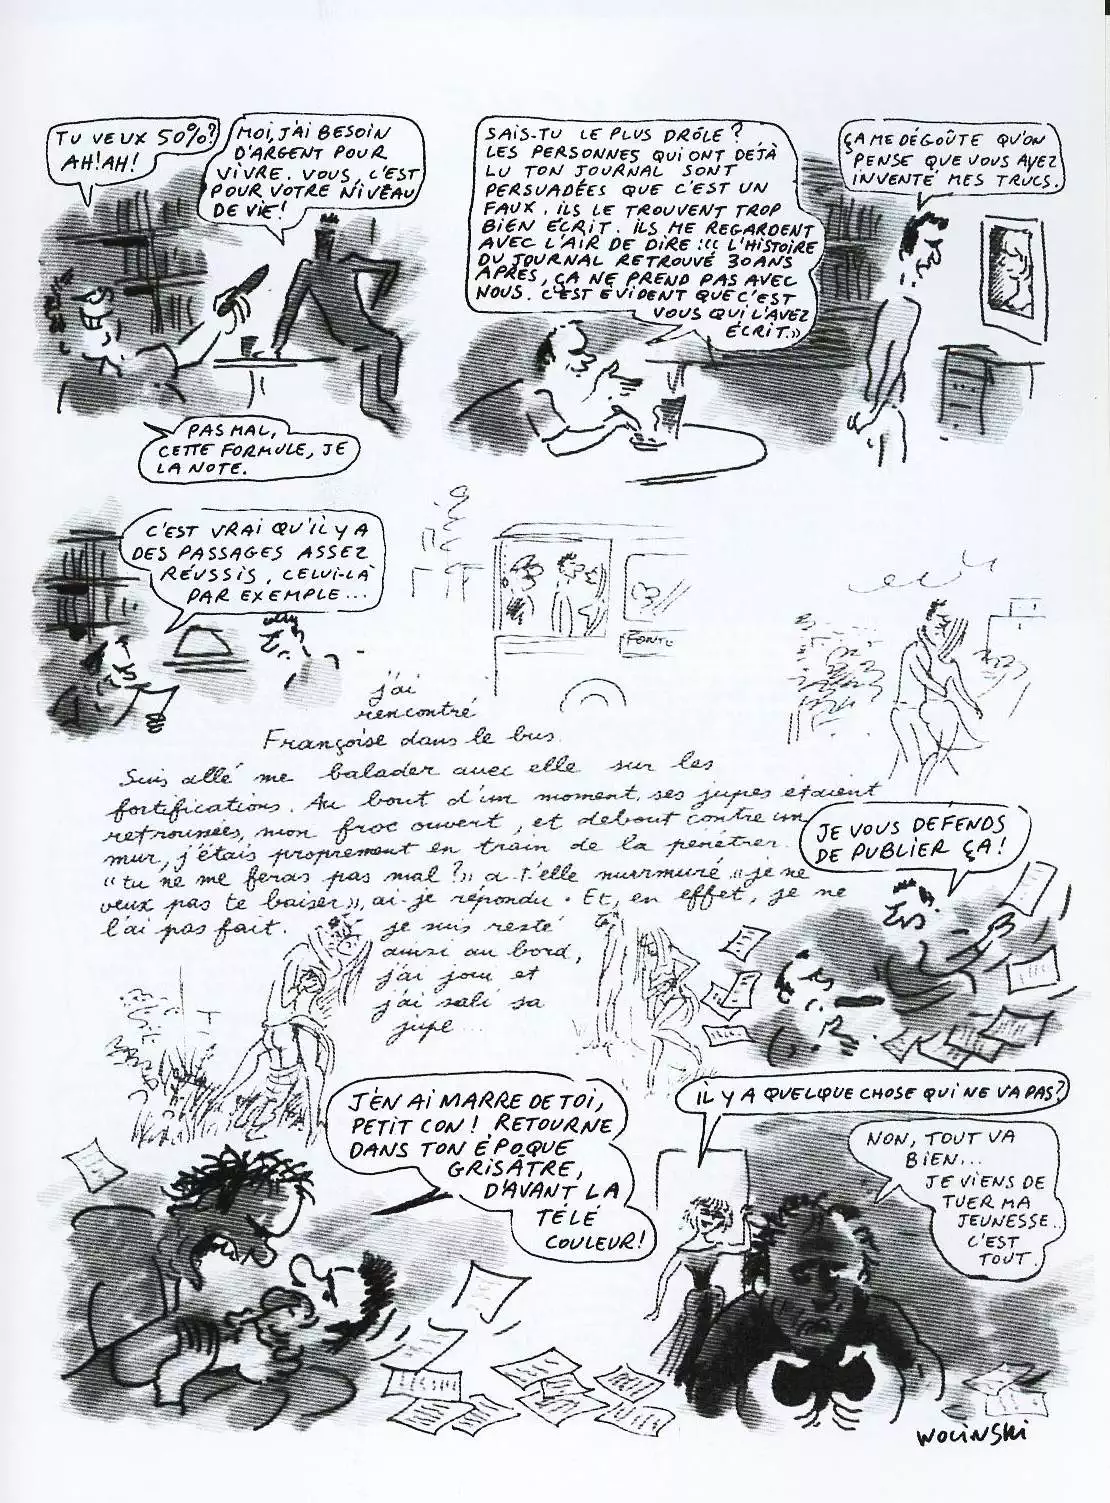 TU VEUX 50%?
AH!AH!
MOI, J'AI BESOIN
D'ARGENT POUR
VIVRE. VOUS, C'EST
POUR VOTRE NIVEAU
DE VIE!
PAS MAL,
CETTE FORMULE, JE
LA NOTE.
SAIS-TU LE PLUS DRÔLE?
LES PERSONNES QUI ONT DÉJÀ
LU TON JOURNAL SONT
PERSUADÉES QUE C'EST UN
FAUX. ILS LE TROUVENT TROP
BIEN ÉCRIT. ILS ME REGARDENT
AVEC L'AIR DE DIRE : « L'HISTOIRE
DU JOURNAL RETROUVÉ 30 ANS
APRÈS, ÇA NE PREND PAS AVEC
NOUS. C'EST EVIDENT QUE C'EST
VOUS QUI L'AVEZ
ÉCRIT.»
ÇA ME DÉGOÛTE QU'ON
PENSE QUE VOUS AYEZ
INVENTÉ MES TRUCS.
C'EST VRAI QU'IL Y A
DES PASSAGES ASSEZ
RÉUSSIS, CELUI-LÀ
PAR EXEMPLE...
FONTE
j'ai
rencontré
Françoise dans le bus.
Suis allé me balader avec elle sur les
fortifications. Au bout d'un moment, ses jupes étaient
retroussées, mon froc ouvert, et debout contre un
mur, j'étais proprement en train de la pénétrer.
"tu ne me feras pas mal?" a-t'elle murmuré "je ne
veux pas te baiser", ai-je répondu. Et, en effet, je ne
l'ai pas fait.
je suis resté
ainsi au bord,
j'ai joui et
j'ai sali sa
jupe...
JE VOUS DEFENDS
DE PUBLIER ÇA!
J'EN AI MARRE DE TOI,
PETIT CON! RETOURNE
DANS TON ÉPOQUE
GRISÂTRE,
D'AVANT LA
TÉLÉ
COULEUR!
IL Y A QUELQUE CHOSE QUI NE VA PAS?
NON, TOUT VA
BIEN...
JE VIENS DE
TUER MA
JEUNESSE..
C'EST
TOUT.
WOLINSKI